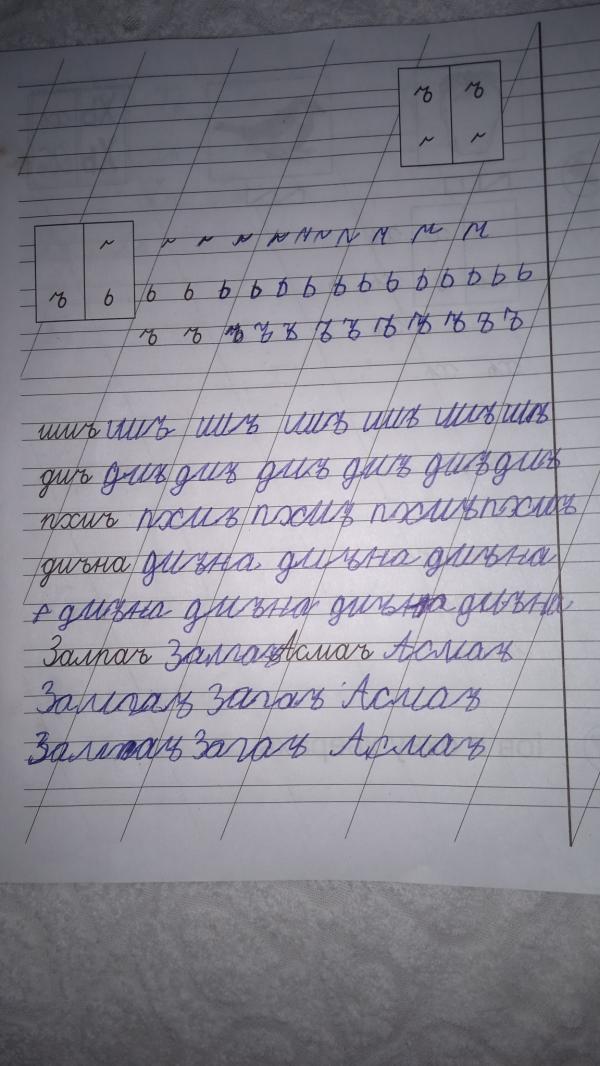 ъ ъ
ъ ь ь ь ь ь ь ь ь ь ь ь ь ь ь ь
ъ ъ ъ ъ ъ ъ ъ ъ ъ ъ ъ ъ
шиъ шиъ шиъ шиъ шиъ шиъ шиъ
диъ диъ диъ диъ диъ диъ диъ
пхиъ пхиъ пхиъ пхиъ пхиъ
диъна диъна диъна диъна
диъна диъна диъна диъна
Залпаъ Залпаъ Асмаъ Асмаъ
Залпаъ Запаъ Асмаъ
Залпаъ Запаъ Асмаъ